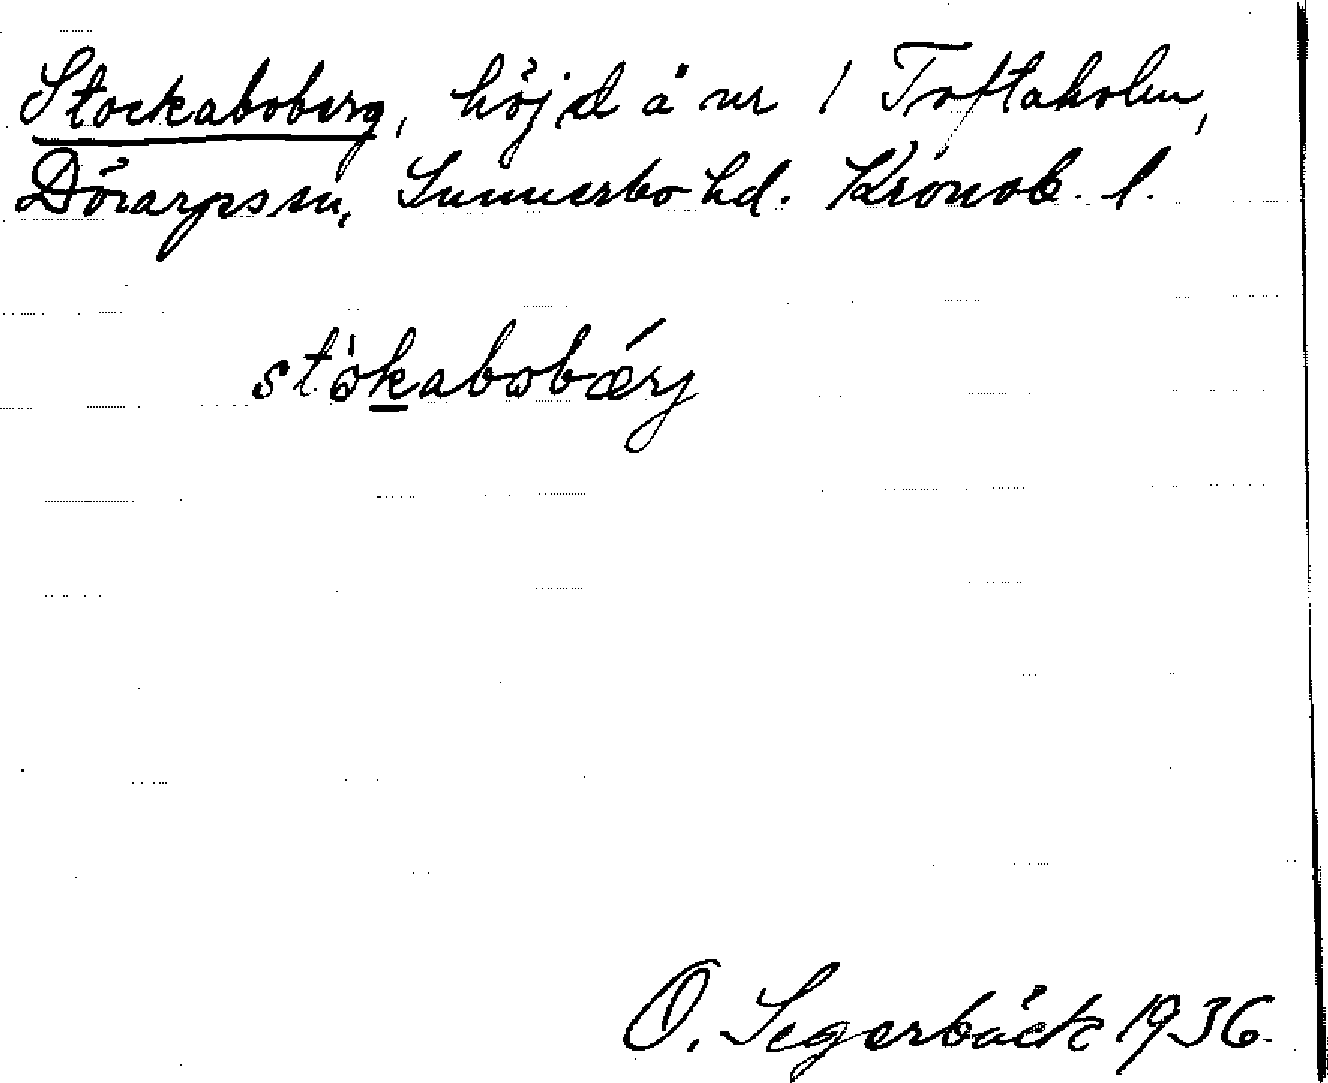 Stockaboberg, höjd å nr 1 Toftaholm,
Dörarps sn, Sunnerbo hd. Kronob. l.
stòkabobǽrj
O. Segerbäck 1936.